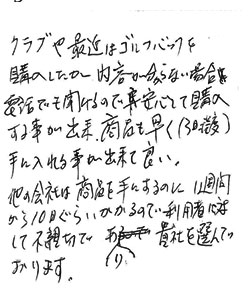 クラブや最近はゴルフバックを
購入したが内容が分らない場合は
電話でも聞けるので安心して購入
する事が出来、商品も早く(3日後)
手に入れる事が出来て良い。
他の会社は商品を手にするのに1週間
から10日ぐらいかかるので利用者に対
して不親切で 貴社を選んで
おります。